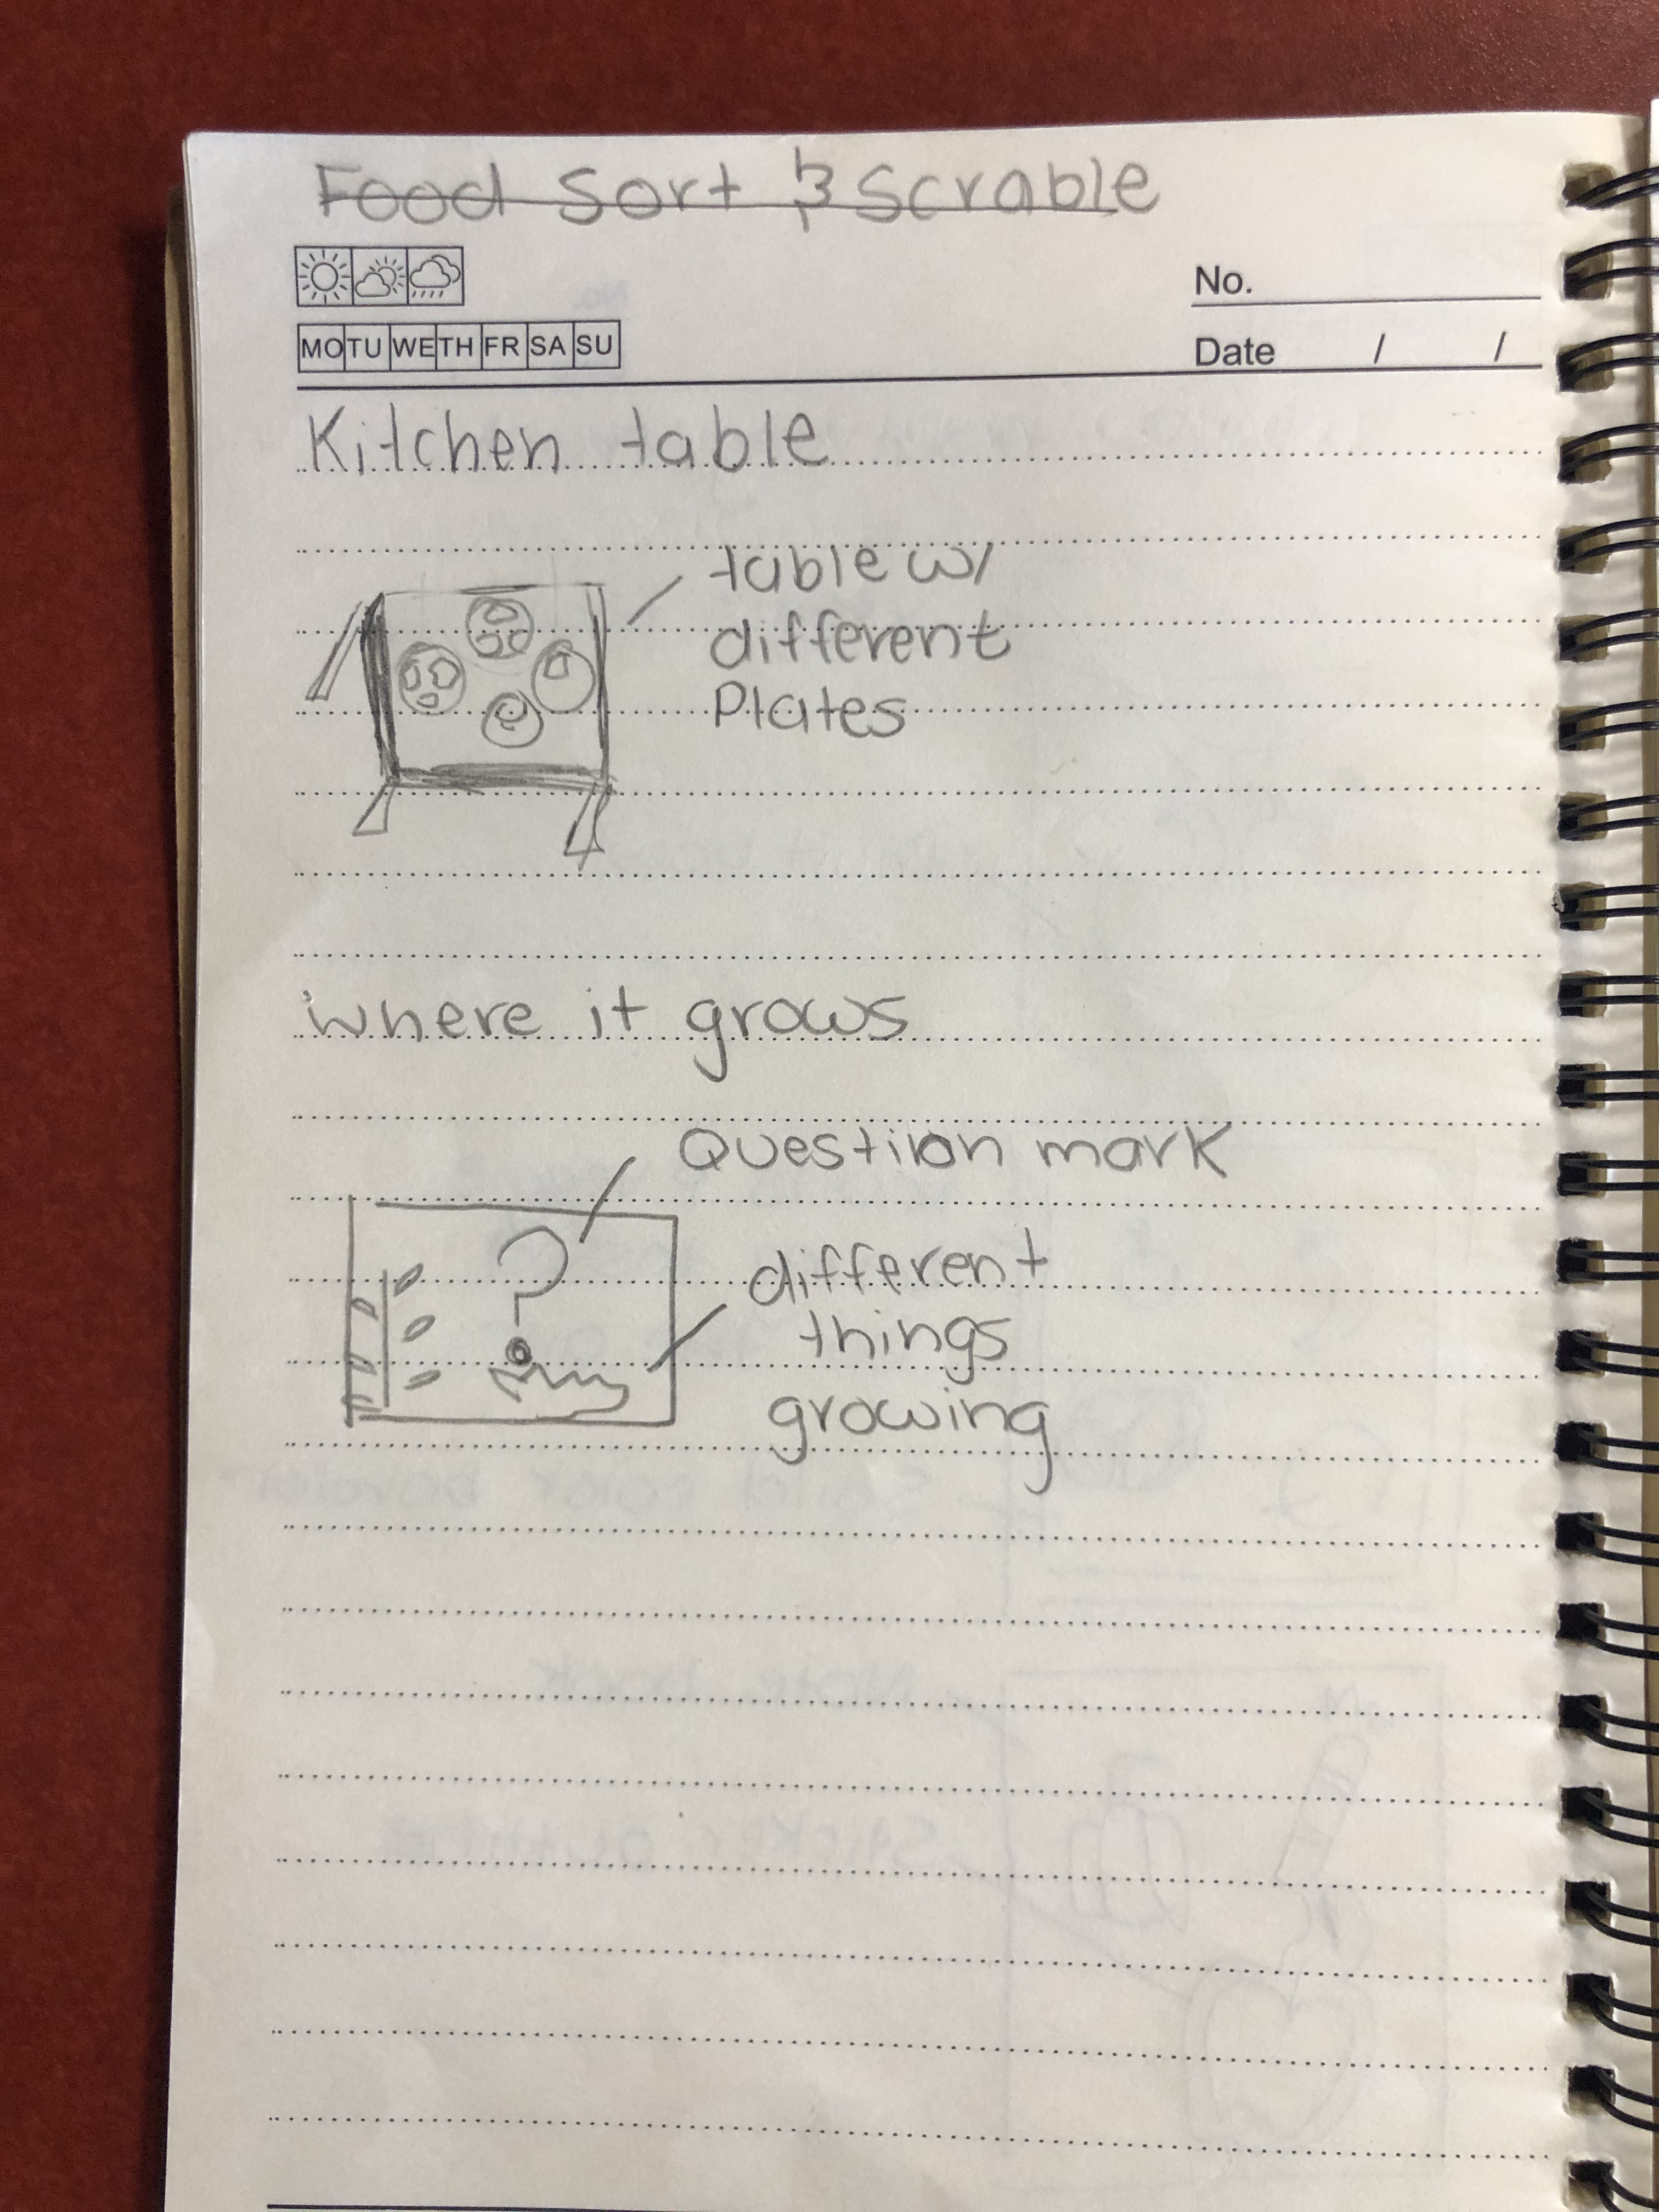 Food Sort & Scrable
No.
MO TU WE TH FR SA SU
Date / /
Kitchen table
table w/
different
Plates
where it grows
Question mark
?
different
things
growing